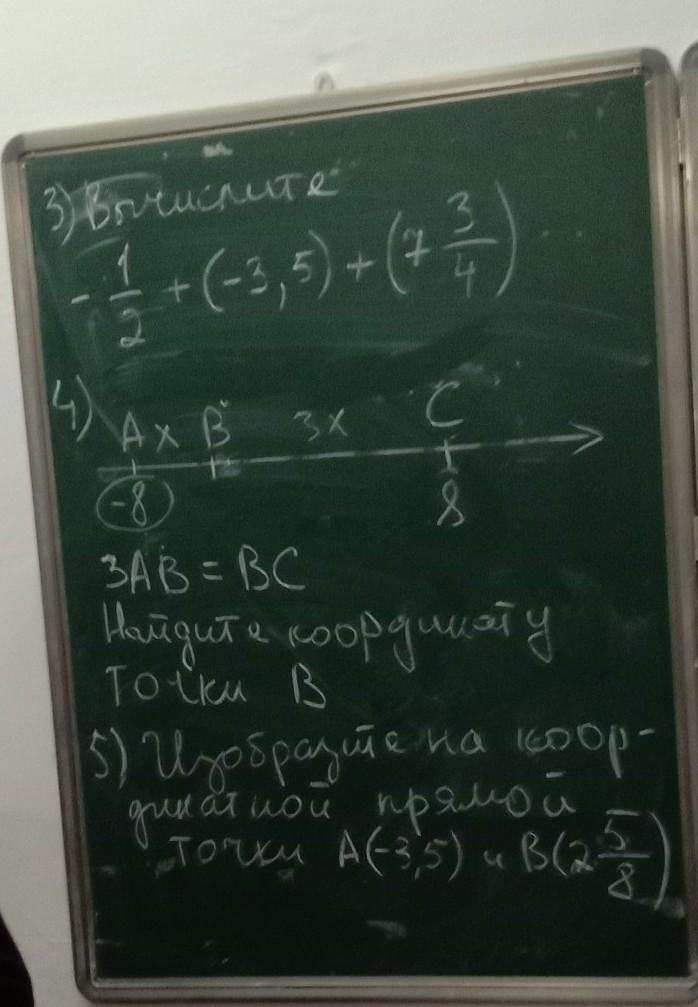 3) Вычислите
-1/2 + (-3,5) + (7 3/4) ...
4) A x B 3x C
-8 8
3AB = BC
Найдите координату
точки B
5) Изобразите на коор-
динатной прямой
точки A(-3,5) и B(2 5/8)